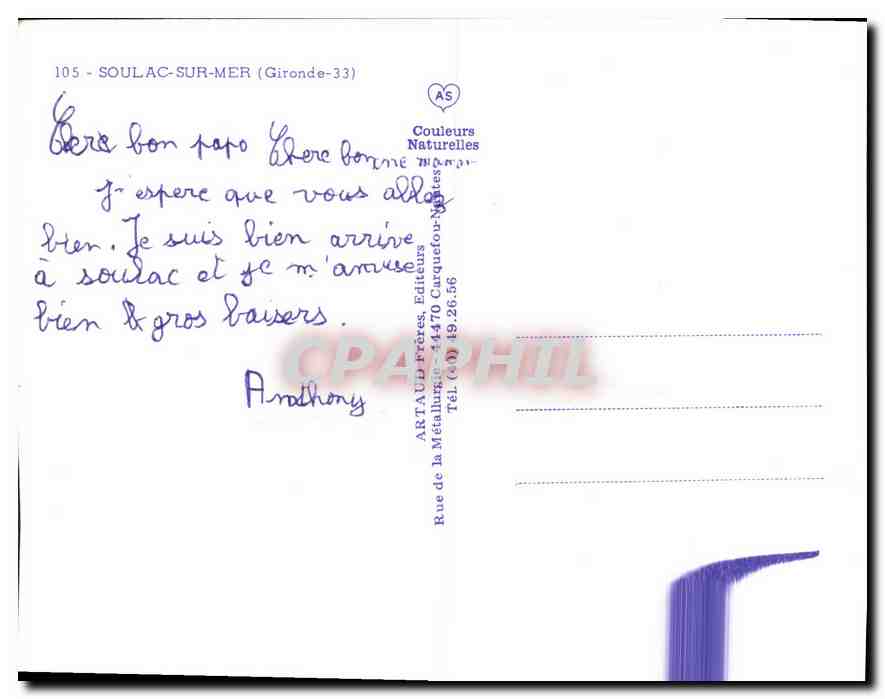 105 - SOULAC-SUR-MER (Gironde-33)
Chere bon papo Chere bonne maman
J'espere que vous allez
bien. Je suis bien arrive
à soulac et je m'amuse
bien & gros baisers.
Anthony
AS
Couleurs
Naturelles
ARTAUD Frères, Editeurs
Rue de la Métallurgie - 44470 Carquefou-Nantes
Tél. (40) 49.26.56
CPAPHIL